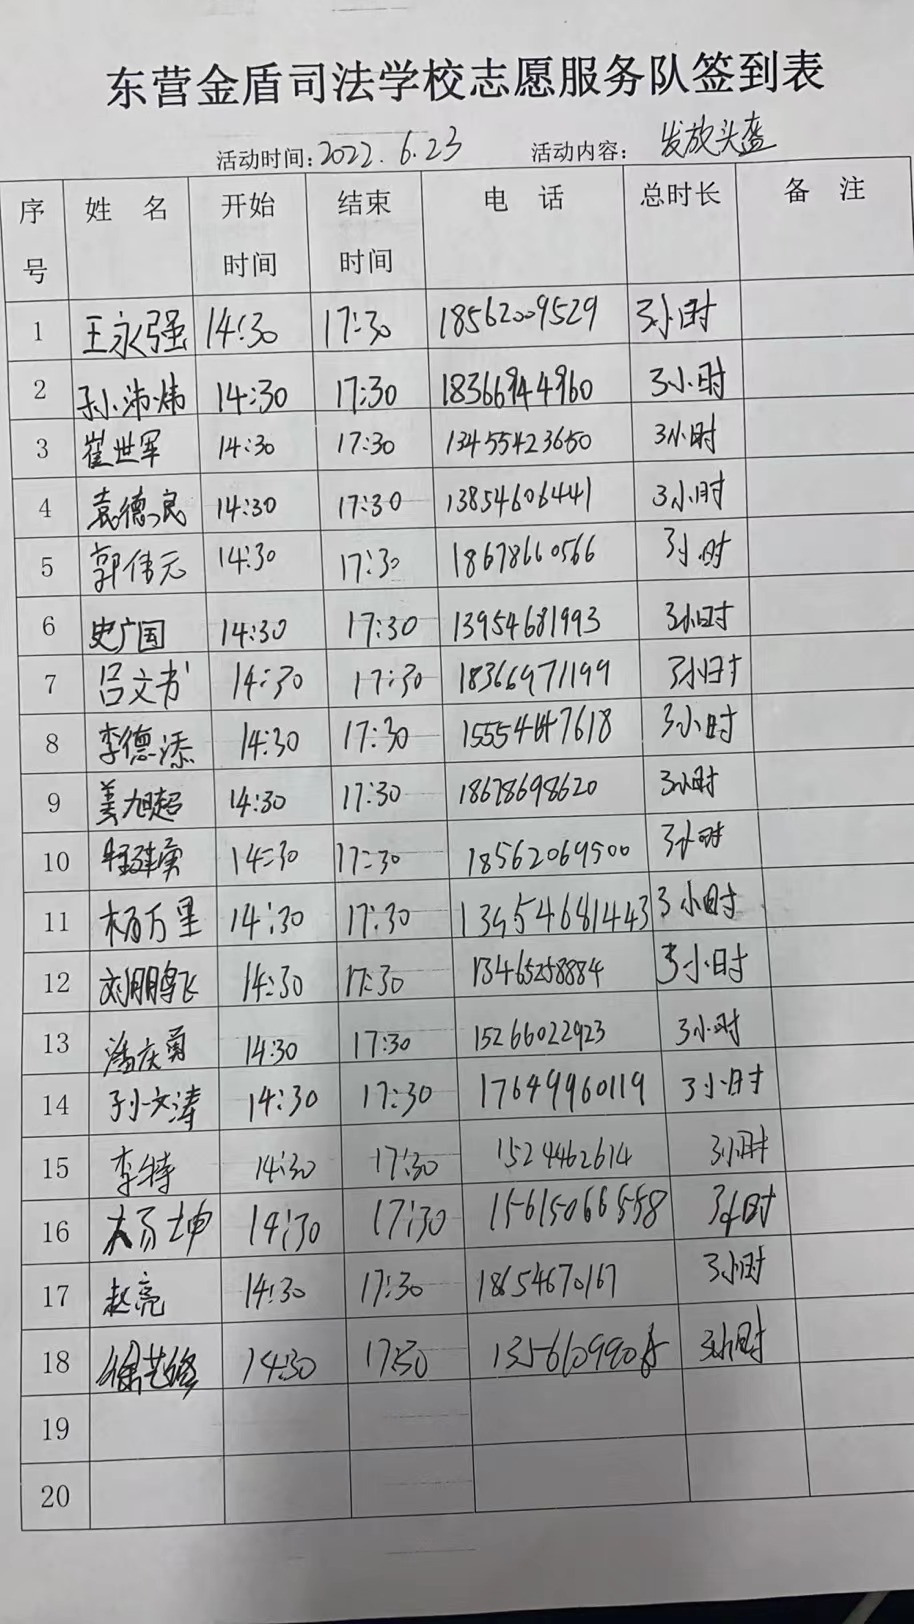 东营金盾司法学校志愿服务队签到表
活动时间：2022.6.23 活动内容：发放头盔
序号 姓名 开始时间 结束时间 电话 总时长 备注
1 王永强 14:30 17:30 18562009529 3小时
2 孙沛炜 14:30 17:30 18366944960 3小时
3 崔世军 14:30 17:30 13455423650 3小时
4 袁德良 14:30 17:30 13854606441 3小时
5 郭伟元 14:30 17:30 18678660566 3小时
6 史广国 14:30 17:30 13954681993 3小时
7 吕文书 14:30 17:30 18366971199 3小时
8 李德添 14:30 17:30 15554447618 3小时
9 姜旭超 14:30 17:30 18678698620 3小时
10 14:30 17:30 18562069500 3小时
11 杨万里 14:30 17:30 13954681443 3小时
12 刘鹏飞 14:30 17:30 13465258884 3小时
13 潘庆勇 14:30 17:30 15266022923 3小时
14 孙文涛 14:30 17:30 17649960119 3小时
15 李特 14:30 17:30 1524462614 3小时
16 杨坤 14:30 17:30 15615066558 3小时
17 赵亮 14:30 17:30 18654670167 3小时
18 14:30 17:30 3小时
19
20